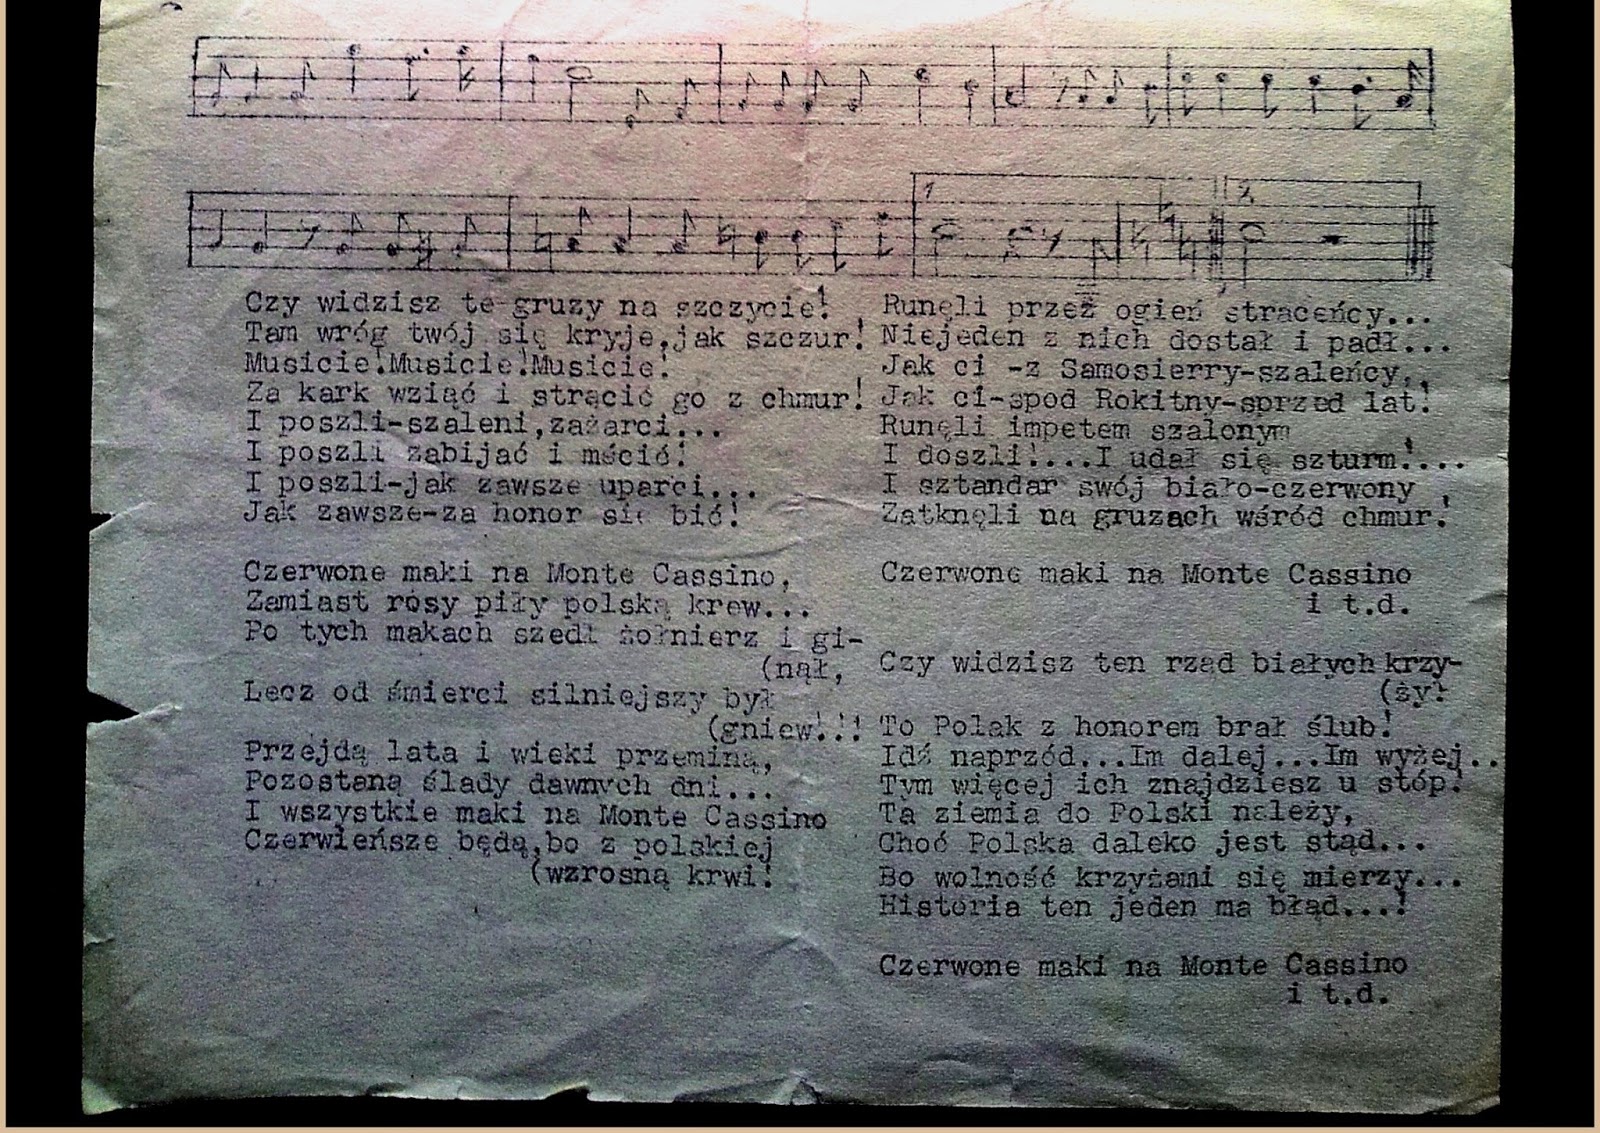 Czy widzisz te gruzy na szczycie!
Tam wróg twój się kryje,jak szczur!
Musicie!Musicie!Musicie!
Za kark wziąć i strącić go z chmur!
I poszli-szaleni,zażarci...
I poszli zabijać i mścić!
I poszli-jak zawsze uparci...
Jak zawsze-za honor się bić!
Czerwone maki na Monte Cassino,
Zamiast rosy piły polską krew...
Po tych makach szedł żołnierz i gi-
(nął,
Lecz od śmierci silniejszy był
(gniew!!!
Przejdą lata i wieki przeminą,
Pozostaną ślady dawnych dni...
I wszystkie maki na Monte Cassino
Czerwieńsze będą,bo z polskiej
(wzrosną krwi!
1
2.
Runęli przez ogień straceńcy...
Niejeden z nich dostał i padł...
Jak ci -z Samosierry-szaleńcy,
Jak ci-spod Rokitny-sprzed lat!
Runęli impetem szalonym
I doszli!...I udał się szturm!...
I sztandar swój biało-czerwony
Zatknęli na gruzach wśród chmur!
Czerwone maki na Monte Cassino
i t.d.
Czy widzisz ten rząd białych krzy-
(ży!
To Polak z honorem brał ślub!
Idź naprzód...Im dalej...Im wyżej..
Tym więcej ich znajdziesz u stóp!
Ta ziemia do Polski należy,
Choć Polska daleko jest stąd...
Bo wolność krzyżami się mierzy...
Historia ten jeden ma błąd...!
Czerwone maki na Monte Cassino
i t.d.